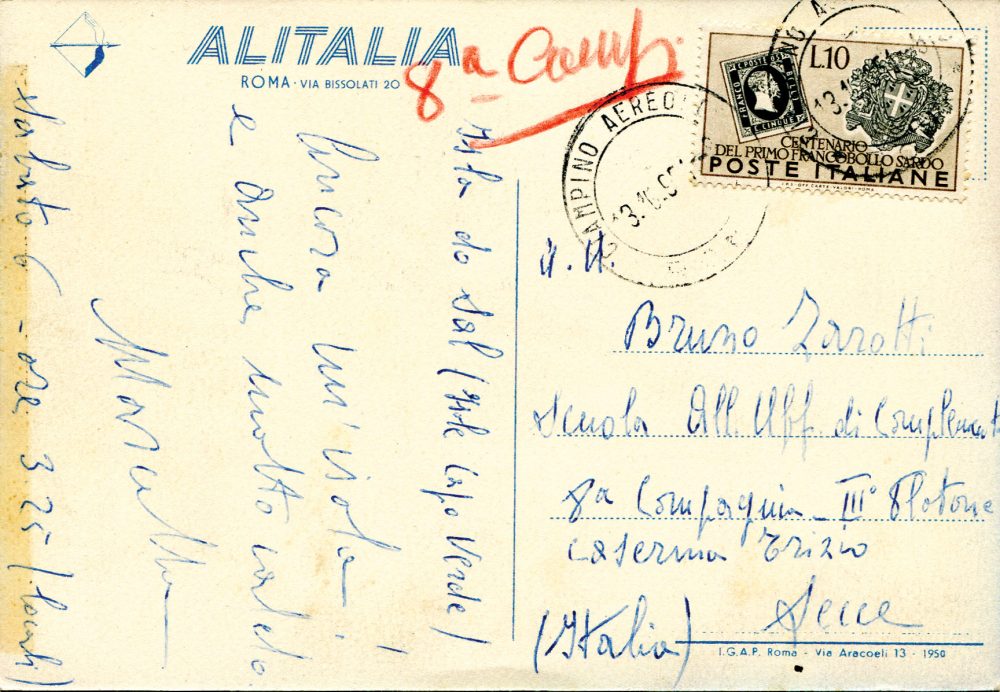 ALITALIA
ROMA · VIA BISSOLATI 20
8ª Comp.
Isla do Sal (Isole Capo Verde)
Ancora un'isola
e anche molto calda.
Sabato 6 - ore 3.25 (locali)
CIAMPINO AEREO
13.10.95
L.10
C. POSTE
BOLLI
FRANCO
C. CINQUE
CENTENARIO
DEL PRIMO FRANCOBOLLO SARDO
POSTE ITALIANE
I.P.S. OFF. CARTE VALORI - ROMA
A.U.
Bruno Zarotti
Scuola All. Uff. di Complemento
8ª Compagnia - III° Plotone
Caserma Trizio
Lecce
(Italia)
I.G.A.P. Roma - Via Aracoeli 13 - 1950